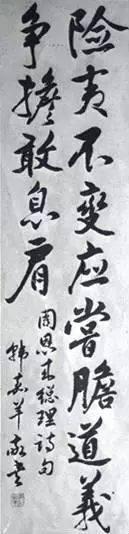 险夷不变应嘗膽道義
争擔敢息肩
周恩来總理诗句
敬书